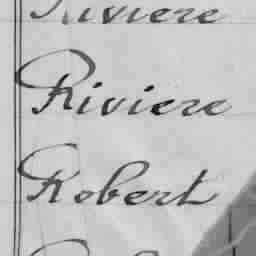 Riviere
Riviere
Robert